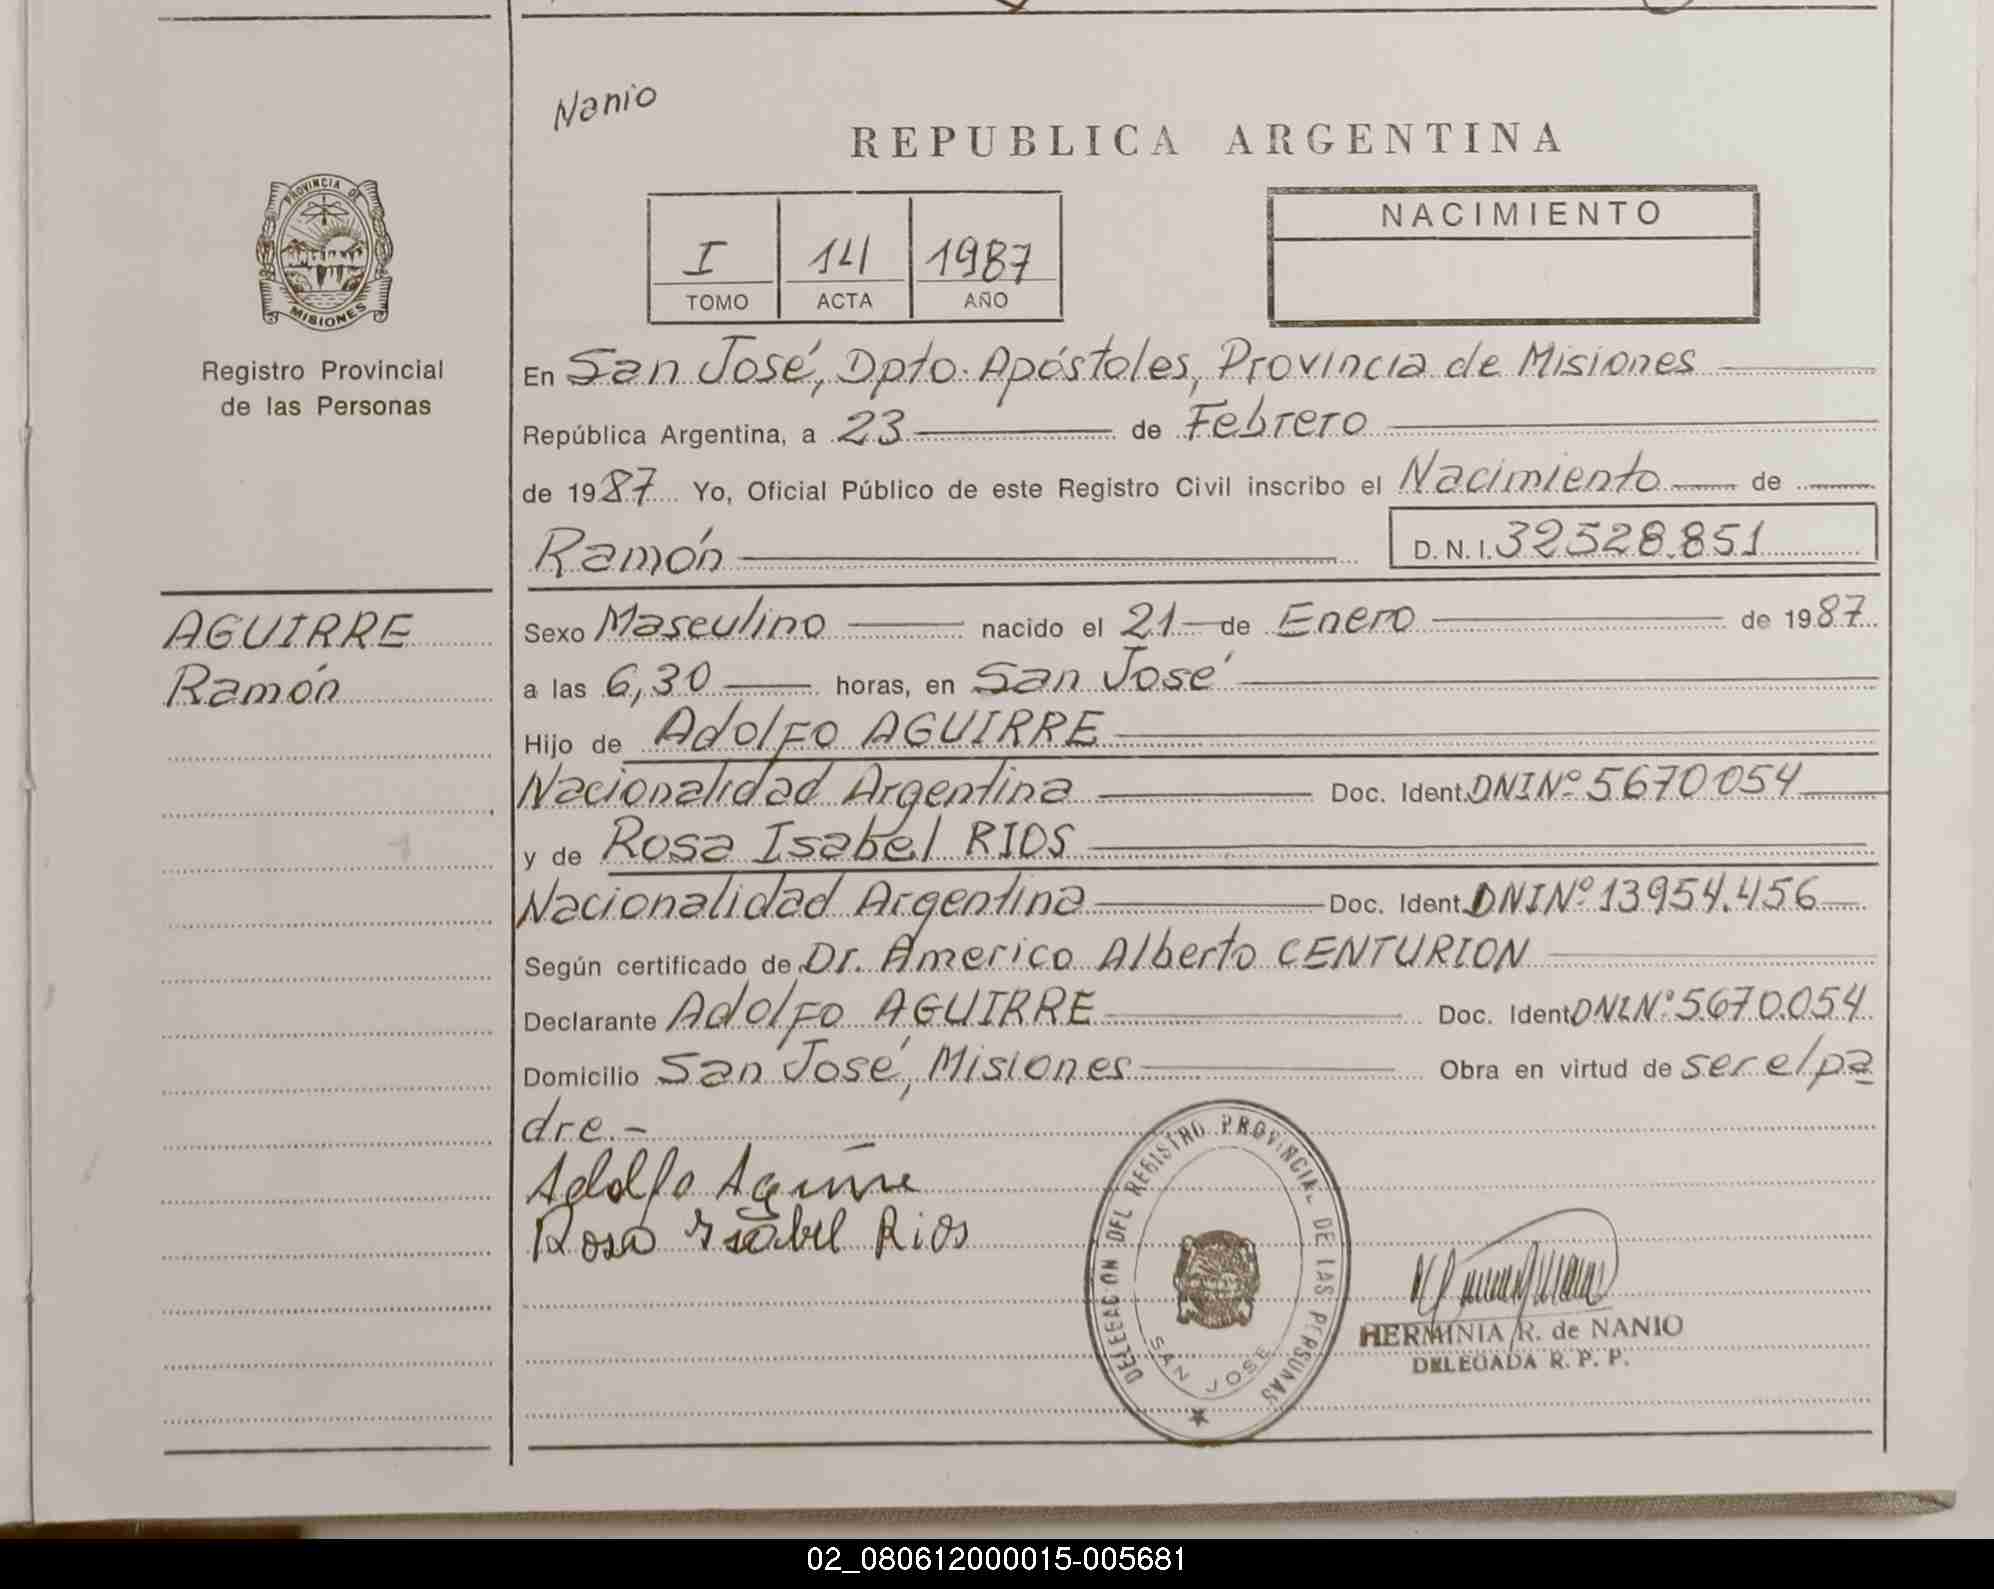 Nanio
REPUBLICA ARGENTINA
PROVINCIA DE
MISIONES
Registro Provincial
de las Personas
I 14 1987
TOMO ACTA AÑO
NACIMIENTO
En San José, Dpto. Apóstoles, Provincia de Misiones
República Argentina, a 23 de Febrero
de 1987 Yo, Oficial Público de este Registro Civil inscribo el Nacimiento de
Ramón D. N. I. 32528.851
AGUIRRE
Ramón
Sexo Masculino nacido el 21 de Enero de 1987
a las 6,30 horas, en San José
Hijo de Adolfo AGUIRRE
Nacionalidad Argentina Doc. Ident. DNINº 5670054
y de Rosa Isabel RIOS
Nacionalidad Argentina Doc. Ident. DNINº 13954.456
Según certificado de Dr. Americo Alberto CENTURION
Declarante Adolfo AGUIRRE Doc. Ident DNI.Nº 5670.054
Domicilio San José, Misiones Obra en virtud de ser el pa
dre.-
Adolfo Aguirre
Rosa Isabel Rios
DELEGACION DEL REGISTRO PROVINCIAL DE LAS PERSONAS
SAN JOSE
HERMINIA R. de NANIO
DELEGADA R. P. P.
02_080612000015-005681